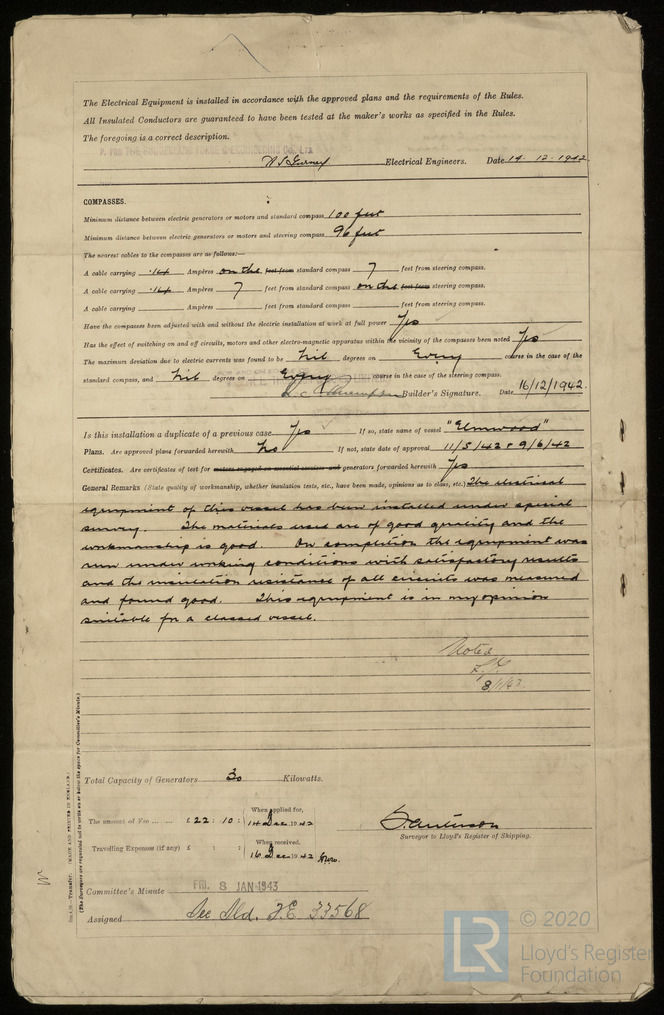 The Electrical Equipment is installed in accordance with the approved plans and the requirements of the Rules.
All Insulated Conductors are guaranteed to have been tested at the maker's works as specified in the Rules.
The foregoing is a correct description.
Electrical Engineers. Date 14. 12. 1942.
COMPASSES.
Minimum distance between electric generators or motors and standard compass 100 feet
Minimum distance between electric generators or motors and steering compass 96 feet
The nearest cables to the compasses are as follows:—
A cable carrying .14 Ampères on the feet from standard compass 7 feet from steering compass.
A cable carrying .14 Ampères 7 feet from standard compass on the feet from steering compass.
A cable carrying Ampères feet from standard compass feet from steering compass.
Have the compasses been adjusted with and without the electric installation at work at full power Yes
Has the effect of switching on and off circuits, motors and other electro-magnetic apparatus within the vicinity of the compasses been noted Yes
The maximum deviation due to electric currents was found to be Nil degrees on Every course in the case of the
standard compass, and Nil degrees on Every course in the case of the steering compass.
Builder's Signature. Date 16/12/1942.
Is this installation a duplicate of a previous case Yes If so, state name of vessel "Elmwood"
Plans. Are approved plans forwarded herewith No If not, state date of approval 11/5/42 & 9/6/42
Certificates. Are certificates of test for motors engaged on essential services and generators forwarded herewith Yes
General Remarks (State quality of workmanship, whether insulation tests, etc., have been made, opinions as to class, etc.) The electrical
equipment of this vessel has been installed under special
survey. The materials used are of good quality and the
workmanship is good. On completion the equipment was
run under working conditions with satisfactory results
and the insulation resistance of all circuits was measured
and found good. This equipment is in my opinion
suitable for a classed vessel.
Noted
8/1/43.
Total Capacity of Generators 30 Kilowatts.
The amount of Fee ... ... £ 22 : 10 : When applied for, 14 Dec 1942
Travelling Expenses (if any) £ : : When received, 16 Dec 1942
Surveyor to Lloyd's Register of Shipping.
Committee's Minute FRI. 8 JAN 1943
Assigned See Sld. F.E. 33568
Transfer. (MADE AND PRINTED IN ENGLAND.)
(The Surveyors are requested not to write on or below the space for Committee's Minute.)
© 2020
LR
Lloyd's Register
Foundation